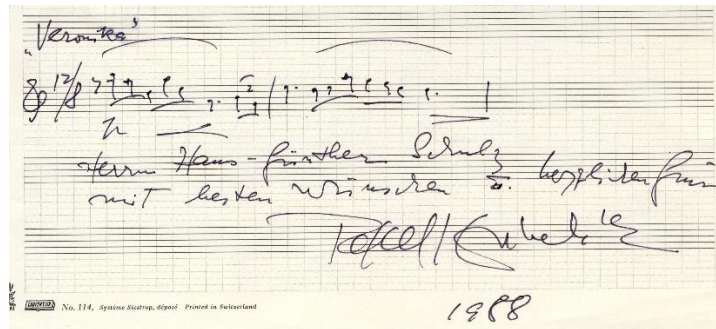 „Veronika“
12/8
p
Herrn Hans-Günther Schulz
mit besten Wünschen u. herzlichen Gruss
Rafael Kubelik
No. 114, Système Siestrop, déposé Printed in Switzerland
1988